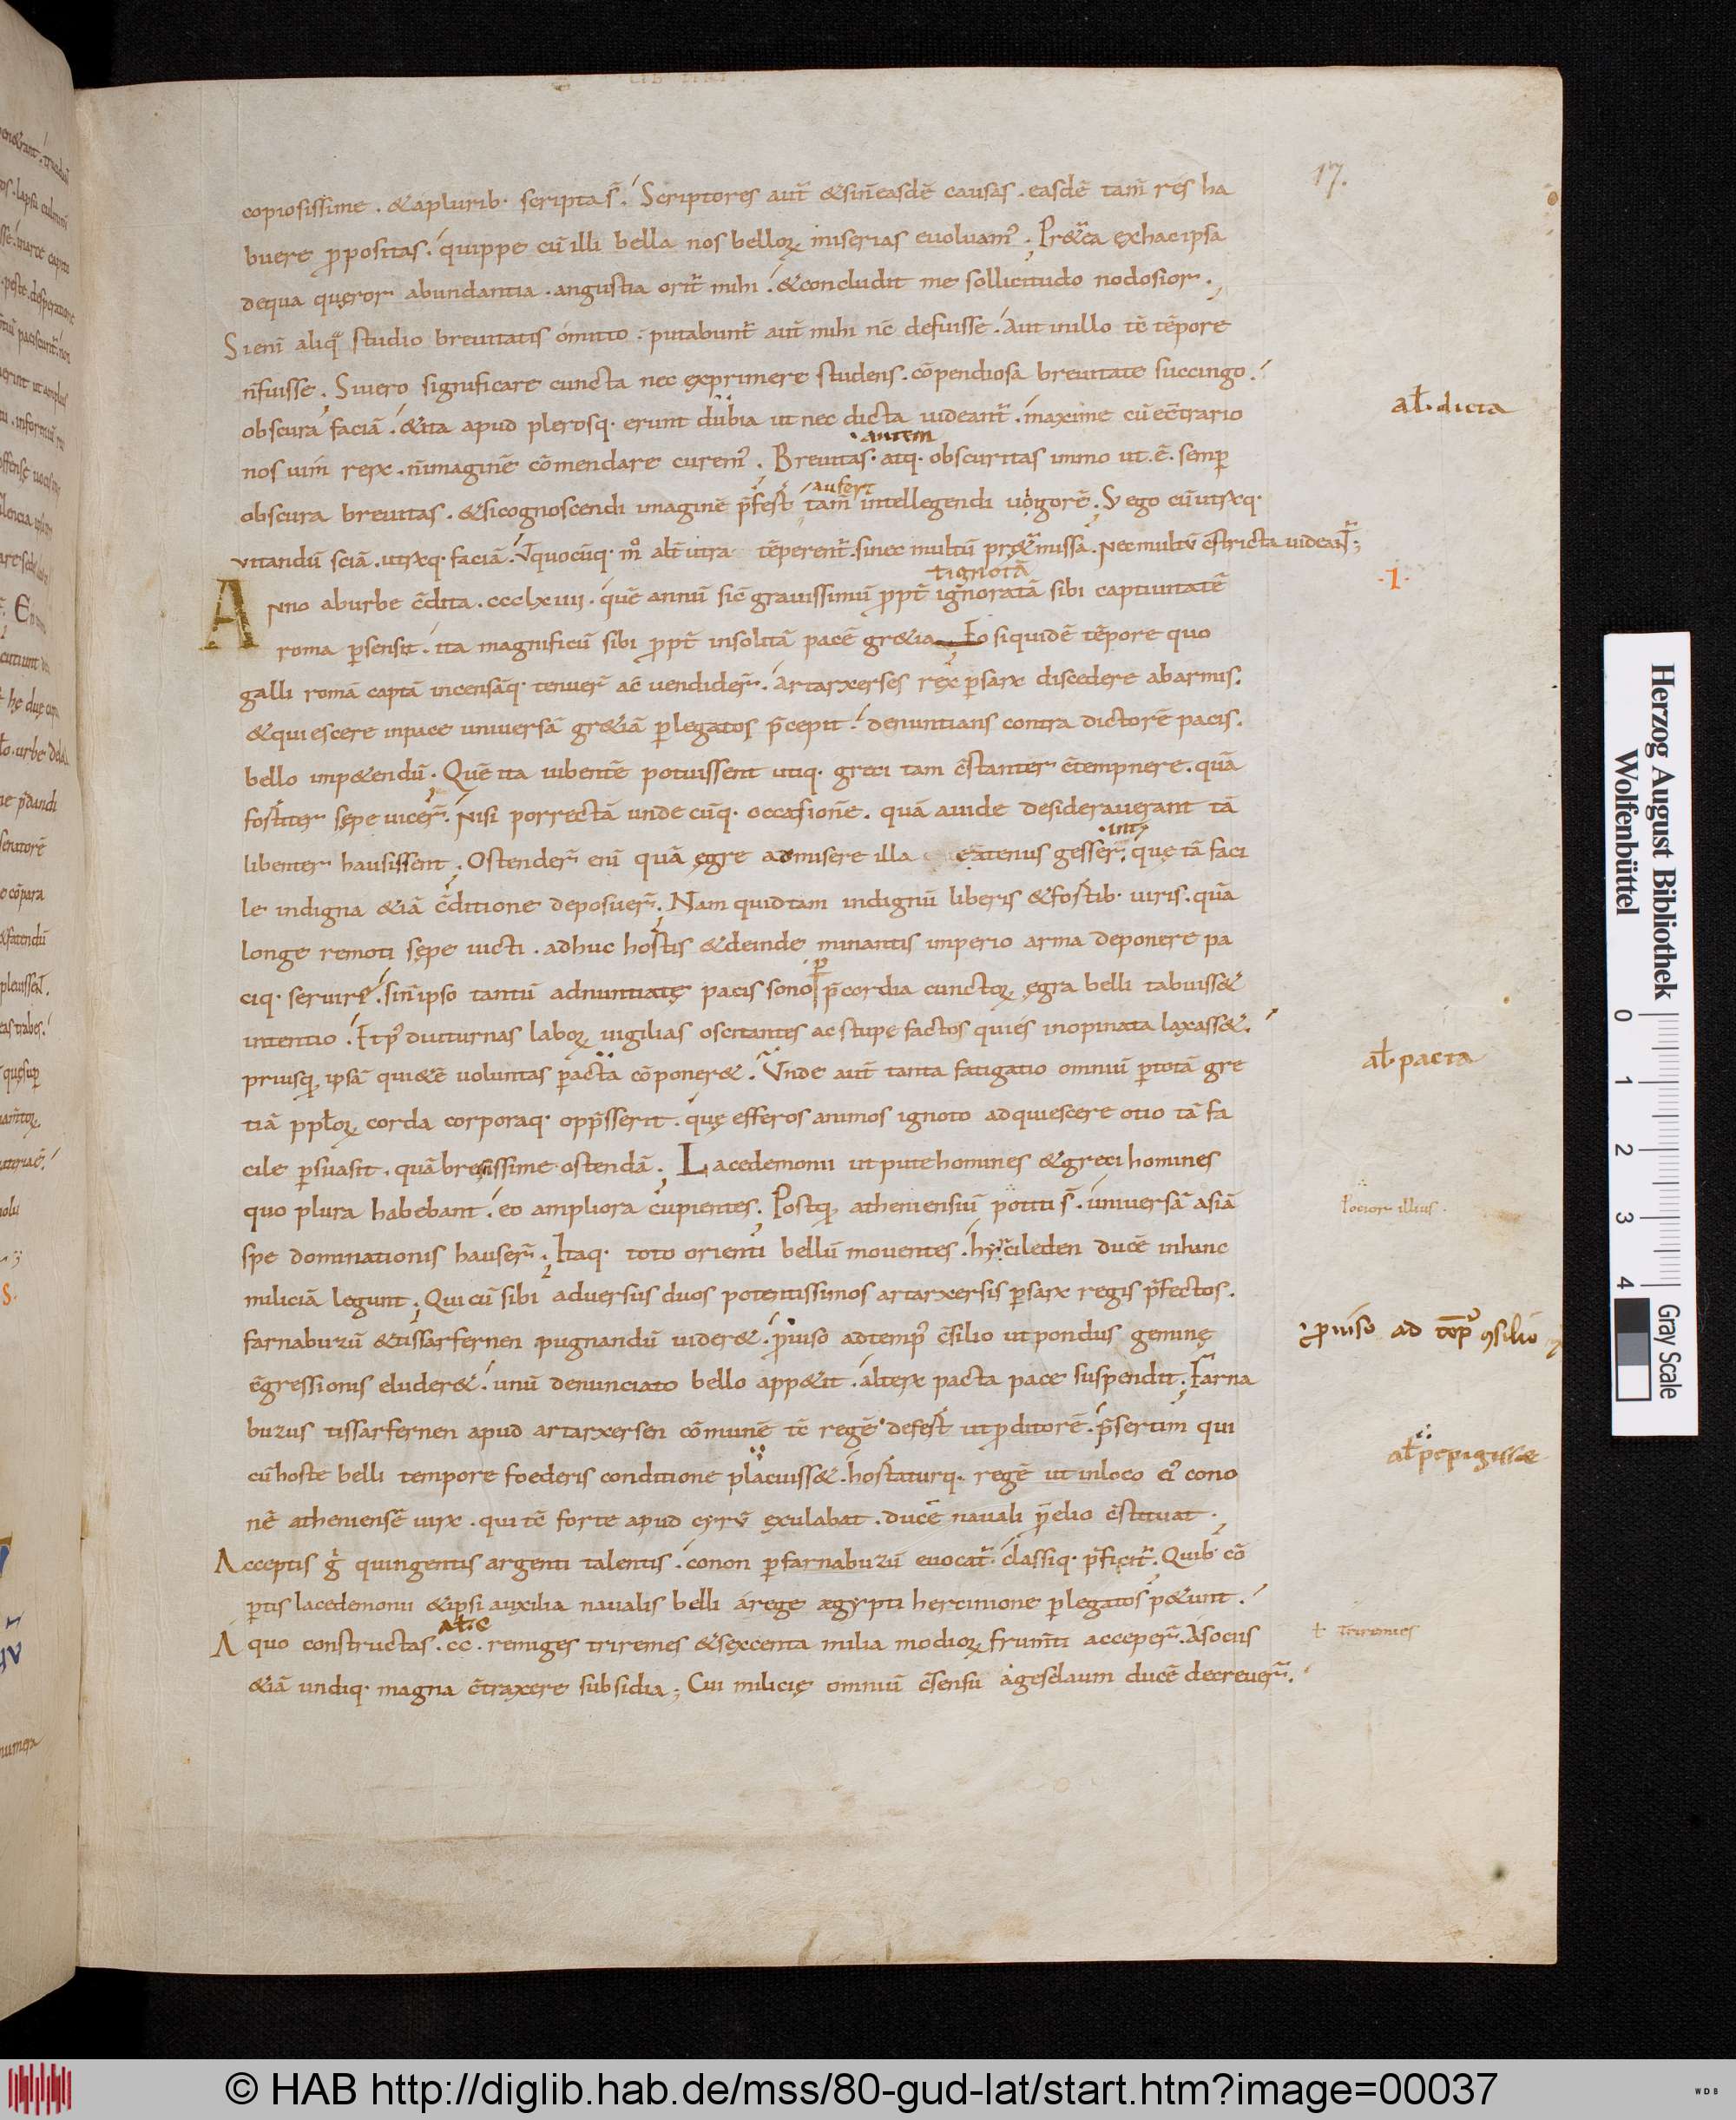 17.
copiosissime . & a plurib· scripta s̄ . Scriptores aut̄ & si n̄ easdē causas . easdē tam̄ res ha
buere ppositas . quippe cū illi bella nos belloꝝ miserias euoluam᾽ . Pr&ea ex hac ipsa
de qua queror abundantia . angustia orit᷑ mihi . & concludit me sollicitudo nodosior .
Si enī aliq studio breuitatis omitto . putabunt᷑ aut mihi nc̄ defuisse . Aut in illo tc̄ tēpore
n̄ fuisse . Si uero significare cuncta nec exprimere studens . cōpendiosa breuitate succingo .
obscura faciā . & ita apud plerosq· erunt dubia ut nec dicta uideant᷑ . maxime cū ec̄trario
al̄ · dicta
nos uim̄ reꝝ . n̄ imaginē cōmendare curem᾽ . Breuitas · atq· obscuritas immo ut . ē . semp
· autem
obscura breuitas . & si cognoscendi imaginē p̄fert tam̄ intellegendi uigorē . S; ego cū utrūq·
aufert
uitandū sciā . utrūq· faciā . Ut quocūq· m̊ alt̄utra tēperent᷑ . si nec multū pr&ermissa . nec multū c̄stricta uideant᷑ ;
· I ·
Anno ab urbe c̄dita . ccclxiiii . quē annū sic̄ grauissimū ppt̄ ignoratā sibi captiuitatē
ł ignotā
roma psensit . ita magnificū sibi ppt̄ insolitā pacē gr&ia Eo siquidē tēpore quo
galli romā captā incensāq· tenuer̄ ac̄ uendider̄ . Artarxerses rex psaꝝ discedere ab armis .
& quiescere in pace uniuersā gr&iā p legatos p̄cepit . denuntians contra dictorē pacis .
bello imp&endū . Quē ita iubentē potuissent utiq· greci tam c̄stanter c̄tempnere . quā
fortiter sepe uicer̄ . Nisi porrectā undecūq· occasionē . quā auide desiderauerant tā
libenter hausissent . Ostender̄ enī quā ęgre ac misere illa eatenus gesser̄ . quę tā faci
le indigna &iā c̄ditione deposuer̄ . Nam quid tam indignū liberis & fortib· uiris . quā
longe remoti sępe uicti . adhuc hostis & deinde minantis imperio arma deponere pa
ciq· seruire . si n̄ ipso tantū adnuntiatę pacis sono p̄cordia cunctoꝝ ęgra belli tabuiss&
intentio . Et p᾽ diuturnas laboꝝ uigilias oscitantes ac stupefactos quies inopinata laxass& .
priusq ipsā qui&ē uoluntas pacta cōponer& . Unde aut̄ tanta fatigatio omniū p totā gre
al̄ pacta
tiā ppl̄oꝝ corda corporaq· opp̄sserit . quę efferos animos ignoto adquiescere otio tā fa
cile psuasit . quā breuissime ostendā . Lacedemonii utpute homines & greci homines
quo plura habebant . eo ampliora cupientes . Postq atheniensiū potiti s̄ . uniuersā asiā
ł ocior illius .
spe dominationis hauser̄ . Itaq· toto orienti bellū mouentes . hyrcileden ducē in hanc
miliciā legunt . Qui cū sibi aduersus duos potentissimos artarxersis psaꝝ regis p̄fectos .
farnabuzū & tissarfernen pugnandū uider& . puiso ad temp᾽ c̄silio ut pondus geminę
puiso ad tēp᾽ ꝯsilio
c̄gressionis eluder& . unū denunciato bello app&it . alterꝝ pacta pace suspendit . Farna
buzus tissarfernen apud artarxersen cōmunē tc̄ regē defert ut pditorē . p̄sertim qui
cū hoste belli tempore foederis conditione placuiss& . hortaturq· regē ut in loco ei᾽ cono
al̄ pepigisse
nē atheniensē uiꝝ . qui tc̄ forte apud cyrū exulabat . ducē nauali p̄elio c̄stituat .
Acceptis g̊ quingentis argenti talentis . conon p farnabuzū euocat᷑ . classiq· p̄ficit᷑ . Quib· cō
ptis lacedemonii & ipsi auxilia naualis belli a rege ægypti hercinione p legatos p&unt .
A quo constructas . cc . remiges triremes & sexcenta milia modioꝝ frum̄ti acceper̄ . A sociis
al̄ · c
ł triremes
&iā undiq· magna c̄traxere subsidia ; Cui milicię omniū c̄sensu agesilaum ducē decreuer̄ .
Herzog August Bibliothek
Wolfenbüttel
0 1 2 3 4
Gray Scale
© HAB http://diglib.hab.de/mss/80-gud-lat/start.htm?image=00037
WDB